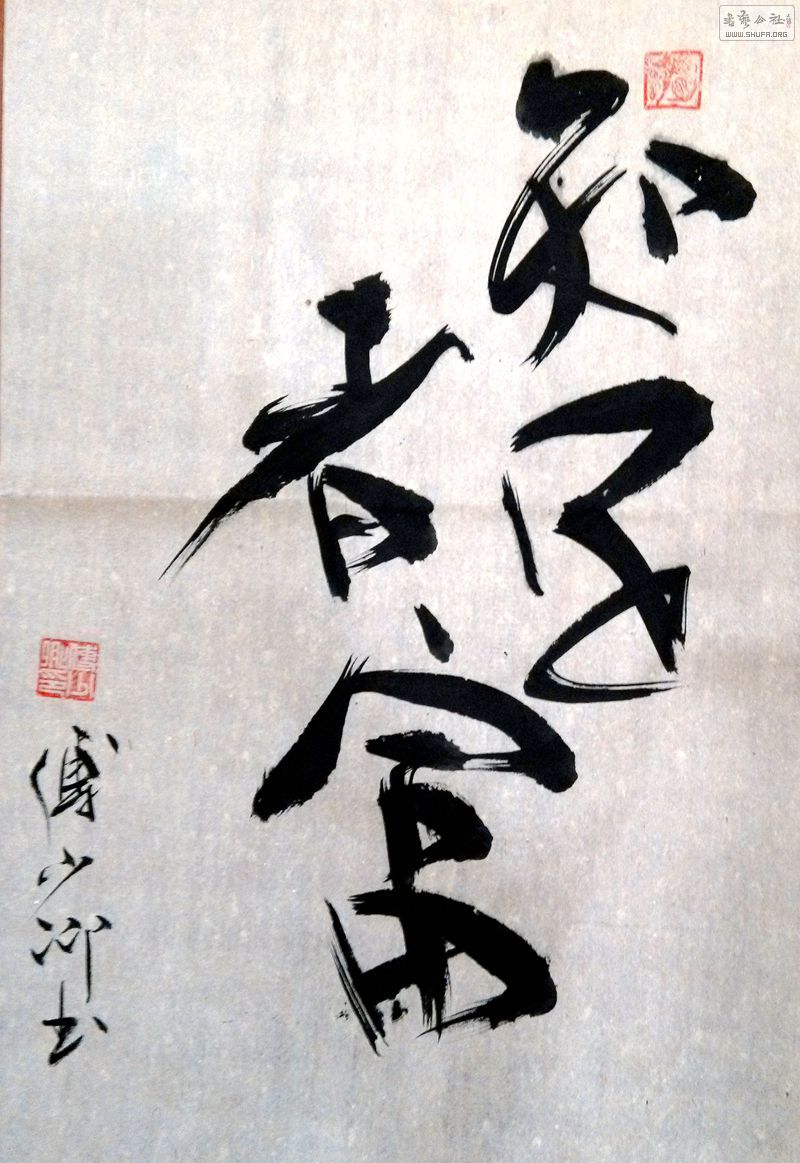 知足
者富
傅少卿书
书艺公社
WWW.SHUFA.ORG